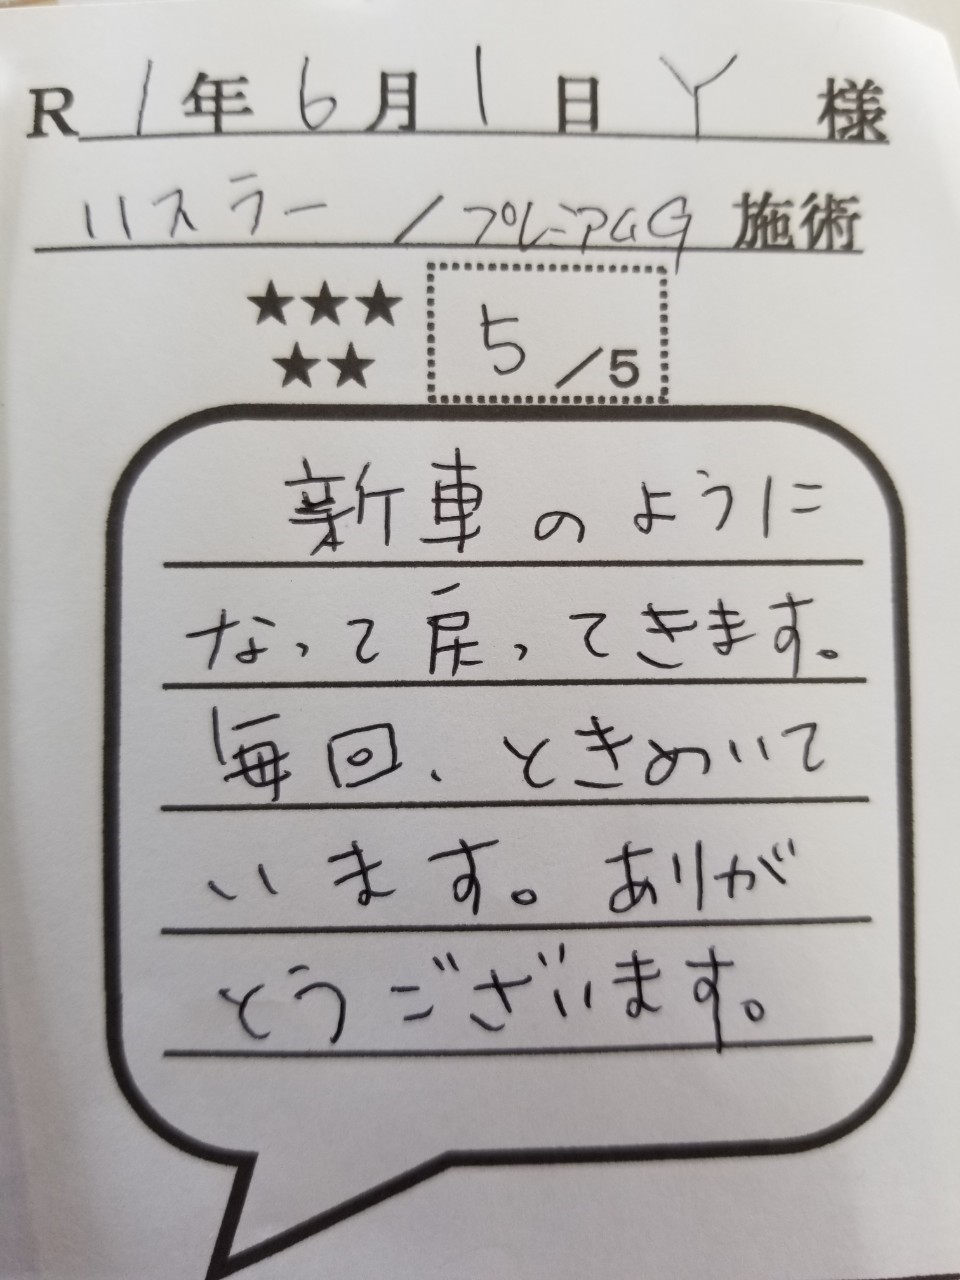 R 1年6月1日 Y 様
ハスラー / プレミアムG 施術
★★★
★★
5 /5
新車のように
なって戻ってきます。
毎回、ときめいて
います。ありが
とうございます。